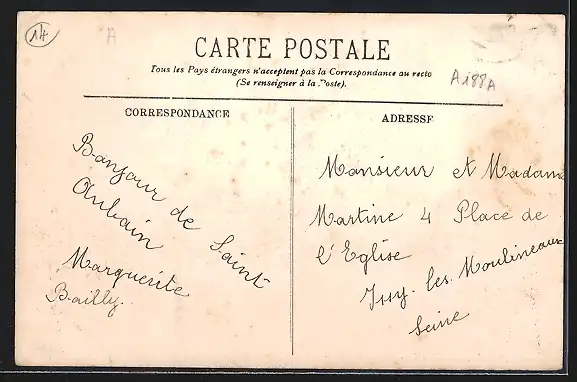 14
A
CARTE POSTALE
Tous les Pays étrangers n'acceptent pas la Correspondance au recto
(Se renseigner à la Poste).
A188A
CORRESPONDANCE
Bonjour de Saint
Aubain
Marguerite
Bailly.
ADRESSE
Monsieur et Madame
Martine 4 Place de
l'Eglise
Issy. les. Moulineaux
Seine